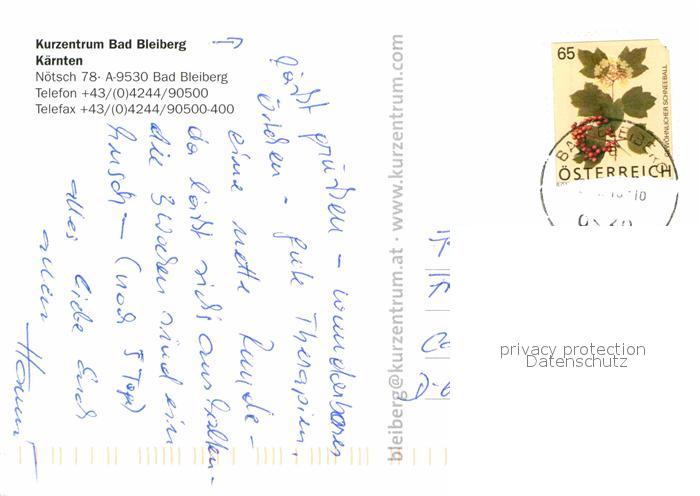 Kurzentrum Bad Bleiberg
Kärnten
Nötsch 78· A-9530 Bad Bleiberg
Telefon +43/(0)4244/90500
Telefax +43/(0)4244/90500-400
lässt grüßen – wunderbares
– gute Therapien,
eine nette Runde –
da lässt sich's aushalten –
die 3 Wochen sind ein
husch – (noch 5 Tage)
alles liebe Euch
allen
bleiberg@kurzentrum.at · www.kurzentrum.com
65
GEWÖHNLICHER SCHNEEBALL
ÖSTERREICH
BAD BLEIBERG
privacy protection
Datenschutz